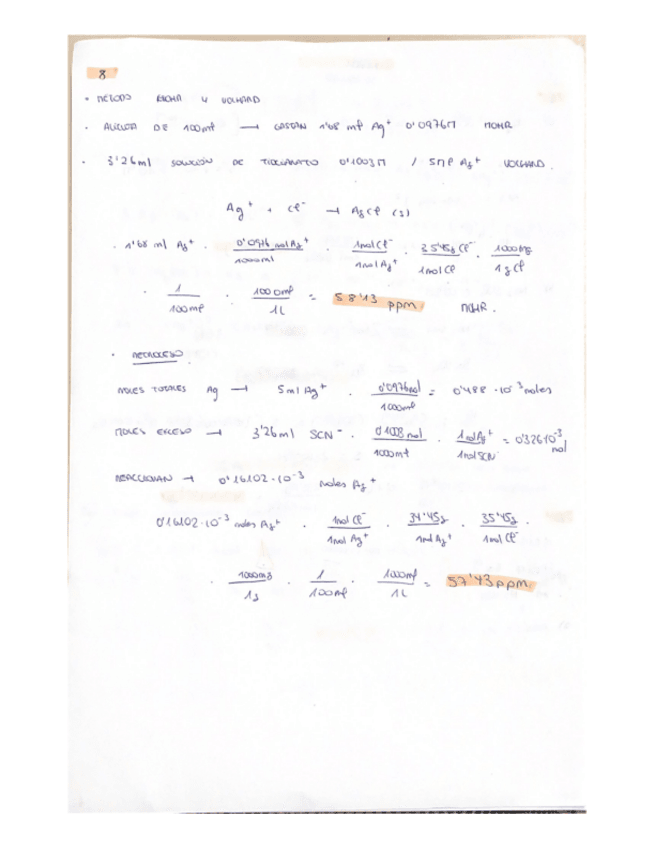 8
· METODO MOHR Y VOLHARD
· ALICUOTA DE 100ml → GASTAN 1'68 ml Ag⁺ 0'0976M MOHR
· 3'26ml SOLUCIÓN DE TIOCIANATO 0'1003M / 5ml Ag⁺ VOLHARD.
Ag⁺ + Cl⁻ → AgCl (s)
· 1'68 ml Ag⁺ · 0'0976 mol Ag⁺ / 1000ml · 1mol Cl⁻ / 1mol Ag⁺ · 35'45g Cl⁻ / 1mol Cl · 1000mg / 1g Cl
· 1 / 100ml · 1000ml / 1L = 58'13 ppm MOHR.
· RETROCESO
MOLES TOTALES Ag → 5ml Ag⁺ · 0'0976mol / 1000ml = 0'488 · 10⁻³ moles
MOLES EXCESO → 3'26ml SCN⁻ · mol / 1000ml · 1molAg⁺ / 1molSCN = 0'326·10⁻³ mol
REACCIONAN → 0'16102·10⁻³ moles Ag⁺
0'16102·10⁻³ moles Ag⁺ · 1mol Cl⁻ / 1mol Ag⁺ · 34'45g / 1mol Ag⁺ · 35'45g / 1mol Cl⁻ ·
· 1000mg / 1g · 1 / 100ml · 1000ml / 1L = 57'43ppm